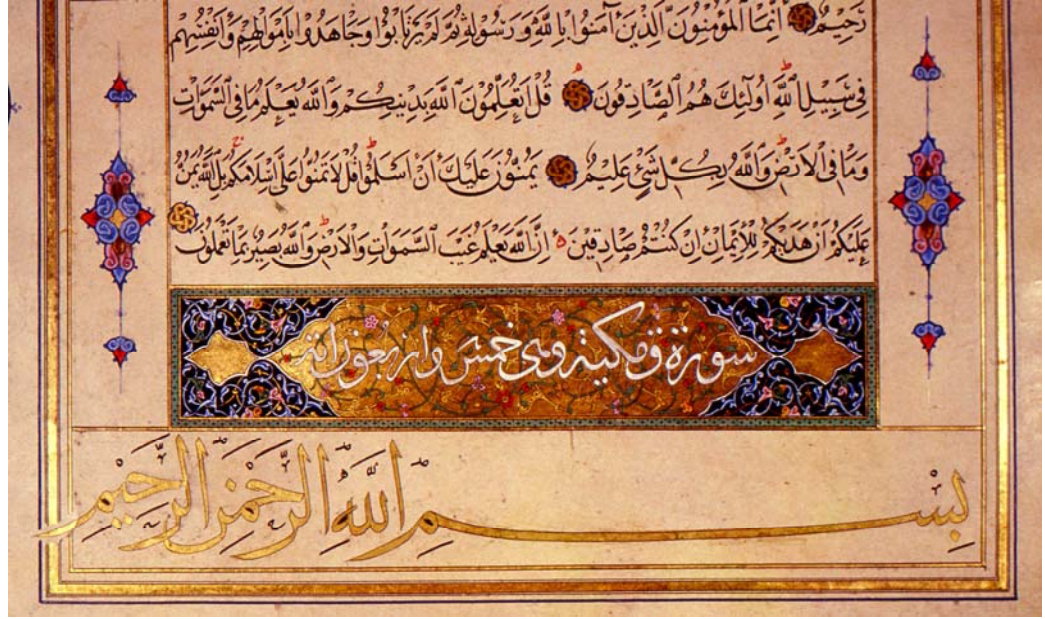 رَحِيمٌ إِنَّمَا ٱلْمُؤْمِنُونَ ٱلَّذِينَ آمَنُوا بِٱللَّهِ وَرَسُولِهِ ثُمَّ لَمْ يَرْتَابُوا وَجَاهَدُوا بِأَمْوَالِهِمْ وَأَنْفُسِهِمْ
فِي سَبِيلِ ٱللَّهِ أُولَٰئِكَ هُمُ ٱلصَّادِقُونَ قُلْ أَتُعَلِّمُونَ ٱللَّهَ بِدِينِكُمْ وَٱللَّهُ يَعْلَمُ مَا فِي ٱلسَّمَوَاتِ
وَمَا فِي ٱلْأَرْضِ وَٱللَّهُ بِكُلِّ شَيْءٍ عَلِيمٌ يَمُنُّونَ عَلَيْكَ أَنْ أَسْلَمُوا قُلْ لَا تَمُنُّوا عَلَيَّ إِسْلَامَكُمْ بَلِ ٱللَّهُ يَمُنُّ
عَلَيْكُمْ أَنْ هَدَيكُمْ لِلْإِيمَانِ إِنْ كُنْتُمْ صَادِقِينَ إِنَّ ٱللَّهَ يَعْلَمُ غَيْبَ ٱلسَّمَوَاتِ وَٱلْأَرْضِ وَٱللَّهُ بَصِيرٌ بِمَا تَعْمَلُونَ
سورة ق مكية وهى خمس واربعون اية
بِسْمِ ٱللَّهِ ٱلرَّحْمَنِ ٱلرَّحِيمِ